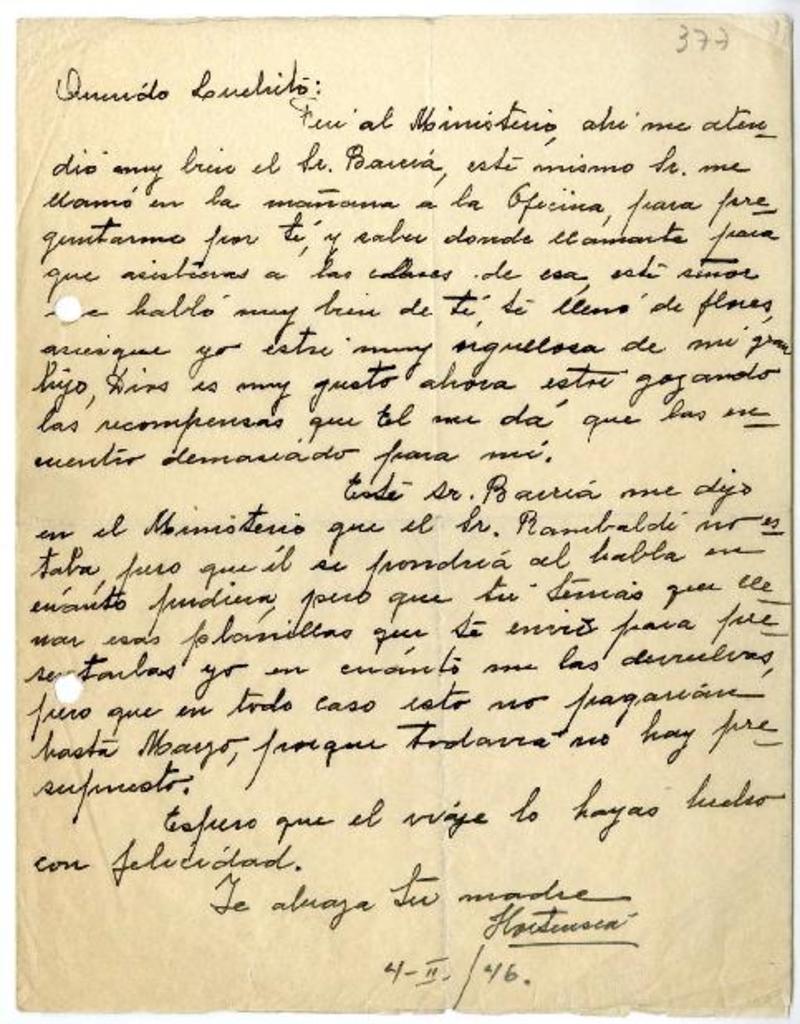 377
Querido Luchito:
Fui al Ministerio, ahí me aten-
dió muy bien el Sr. Barriá, esté mismo Sr. me
llamó en la mañana a la Oficina, para pre-
guntarme por tí, y saber donde llamarte para
que asistieras a las clases de esa, esté señor
me habló muy bien de tí, te llenó de flores,
asi es que yo estré muy orgullosa de mi gran
hijo, Dios es muy gusto ahora estré gozando
las recompensas que El me dá que las en-
cuentro demasiádo para mí.
Esté Sr. Barriá me dijo
en el Ministerio que el Sr. Rambaldi no es-
taba, pero que él se pondriá al habla en
cuánto pudiera, pero que tu teniás que lle-
nar esas planillas que te envié para pre-
sentarlas yo en cuánto me las devuelvas,
pero que en todo caso esto no pagarián
hasta Marzo, porque todavia no hay pre-
supuesto.
Espero que el viáje lo hayas hecho
con felicidad.
Te abraza tu madre
Hortensia
4-II-/46.